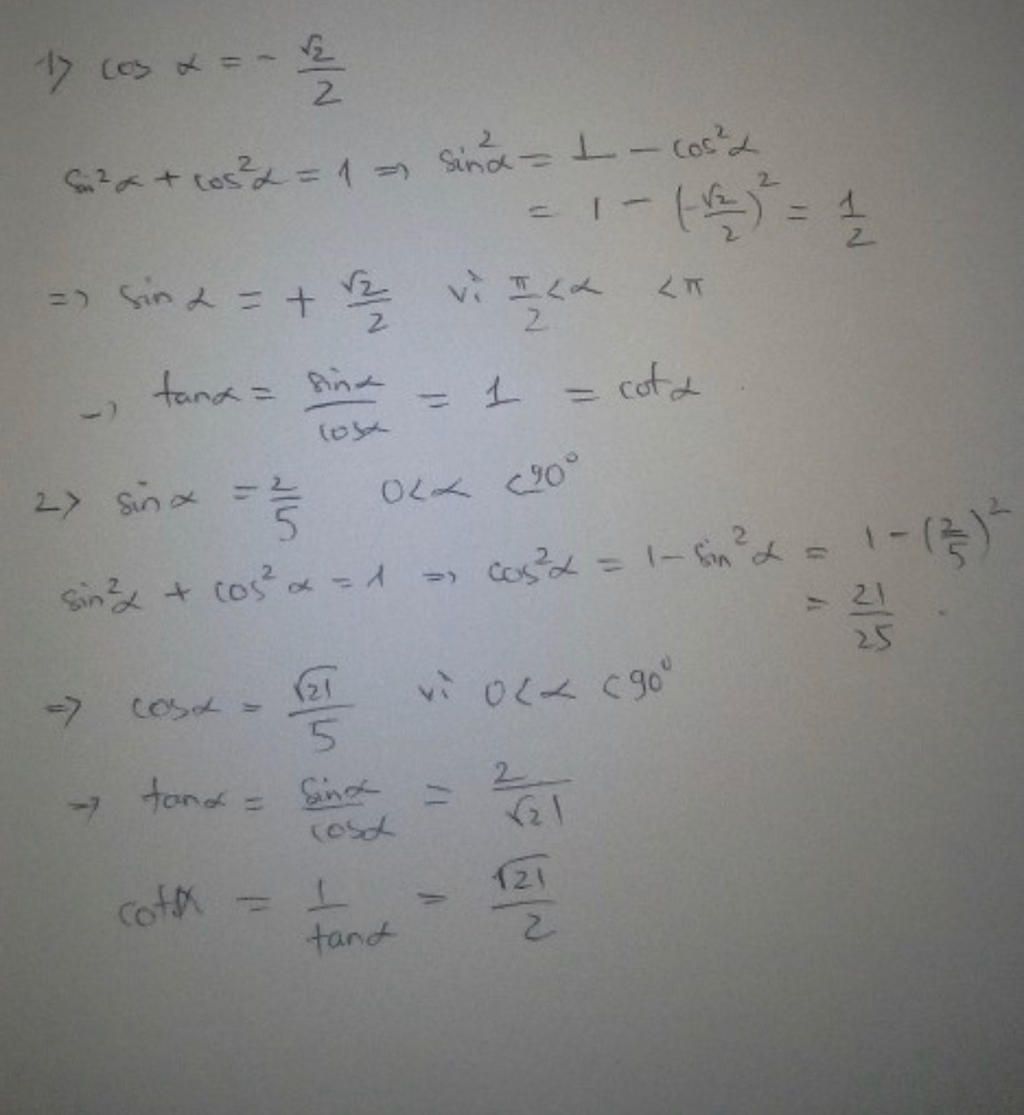 1> cos α = - √2/2
sin²α + cos²α = 1 => sin²α = 1 - cos²α
= 1 - (-√2/2)² = 1/2
=> sin α = + √2/2 vì π/2 < α < π
-> tanα = sinα/cosα = 1 = cotα.
2> sin α = 2/5 0<α <90°
sin²α + cos²α = 1 => cos²α = 1 - sin²α = 1 - (2/5)²
= 21/25.
=> cosα = √21/5 vì 0<α <90°
-> tanα = sinα/cosα = 2/√21
cotα = 1/tanα = √21/2